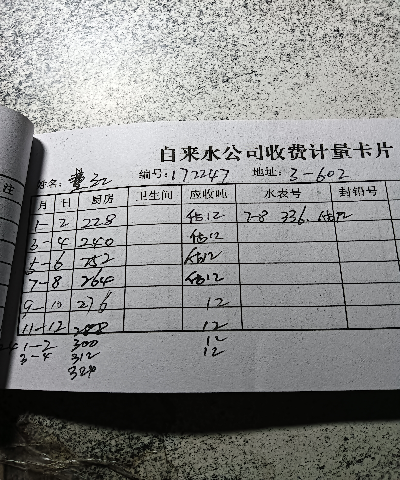 自来水公司收费计量卡片
注
姓名: 编号: 172247 地址: 3-602
月 日 厨房 卫生间 应收吨 水表号 封铅号
1-2 228 估12 7-8 336. 估12
3-4 240 估12
5-6 252 估12
7-8 264 估12
9-10 276 12
11-12 288 12
1-2 300 12
3-4 312 12
324